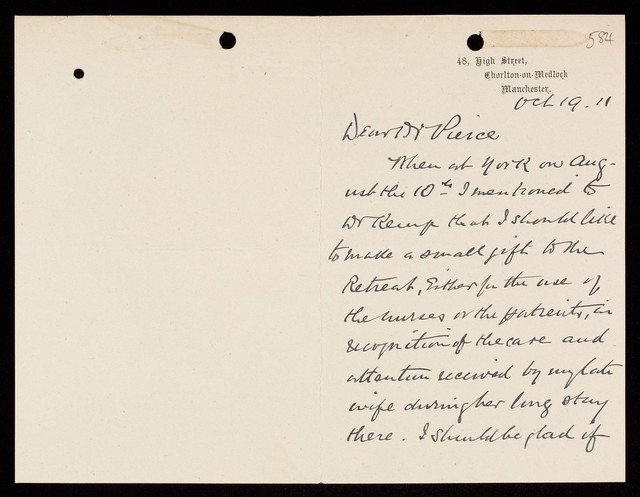 584
48, High Street,
Chorlton-on-Medlock
Manchester.
Oct 19. 11
Dear Dr Pierce
When at York on Aug-
ust the 10th I mentioned to
Dr Kemp that I should like
to make a small gift to the
Retreat, Either for the use of
the nurses or the patients, in
recognition of the care and
attention received by my late
wife during her long stay
there. I should be glad if